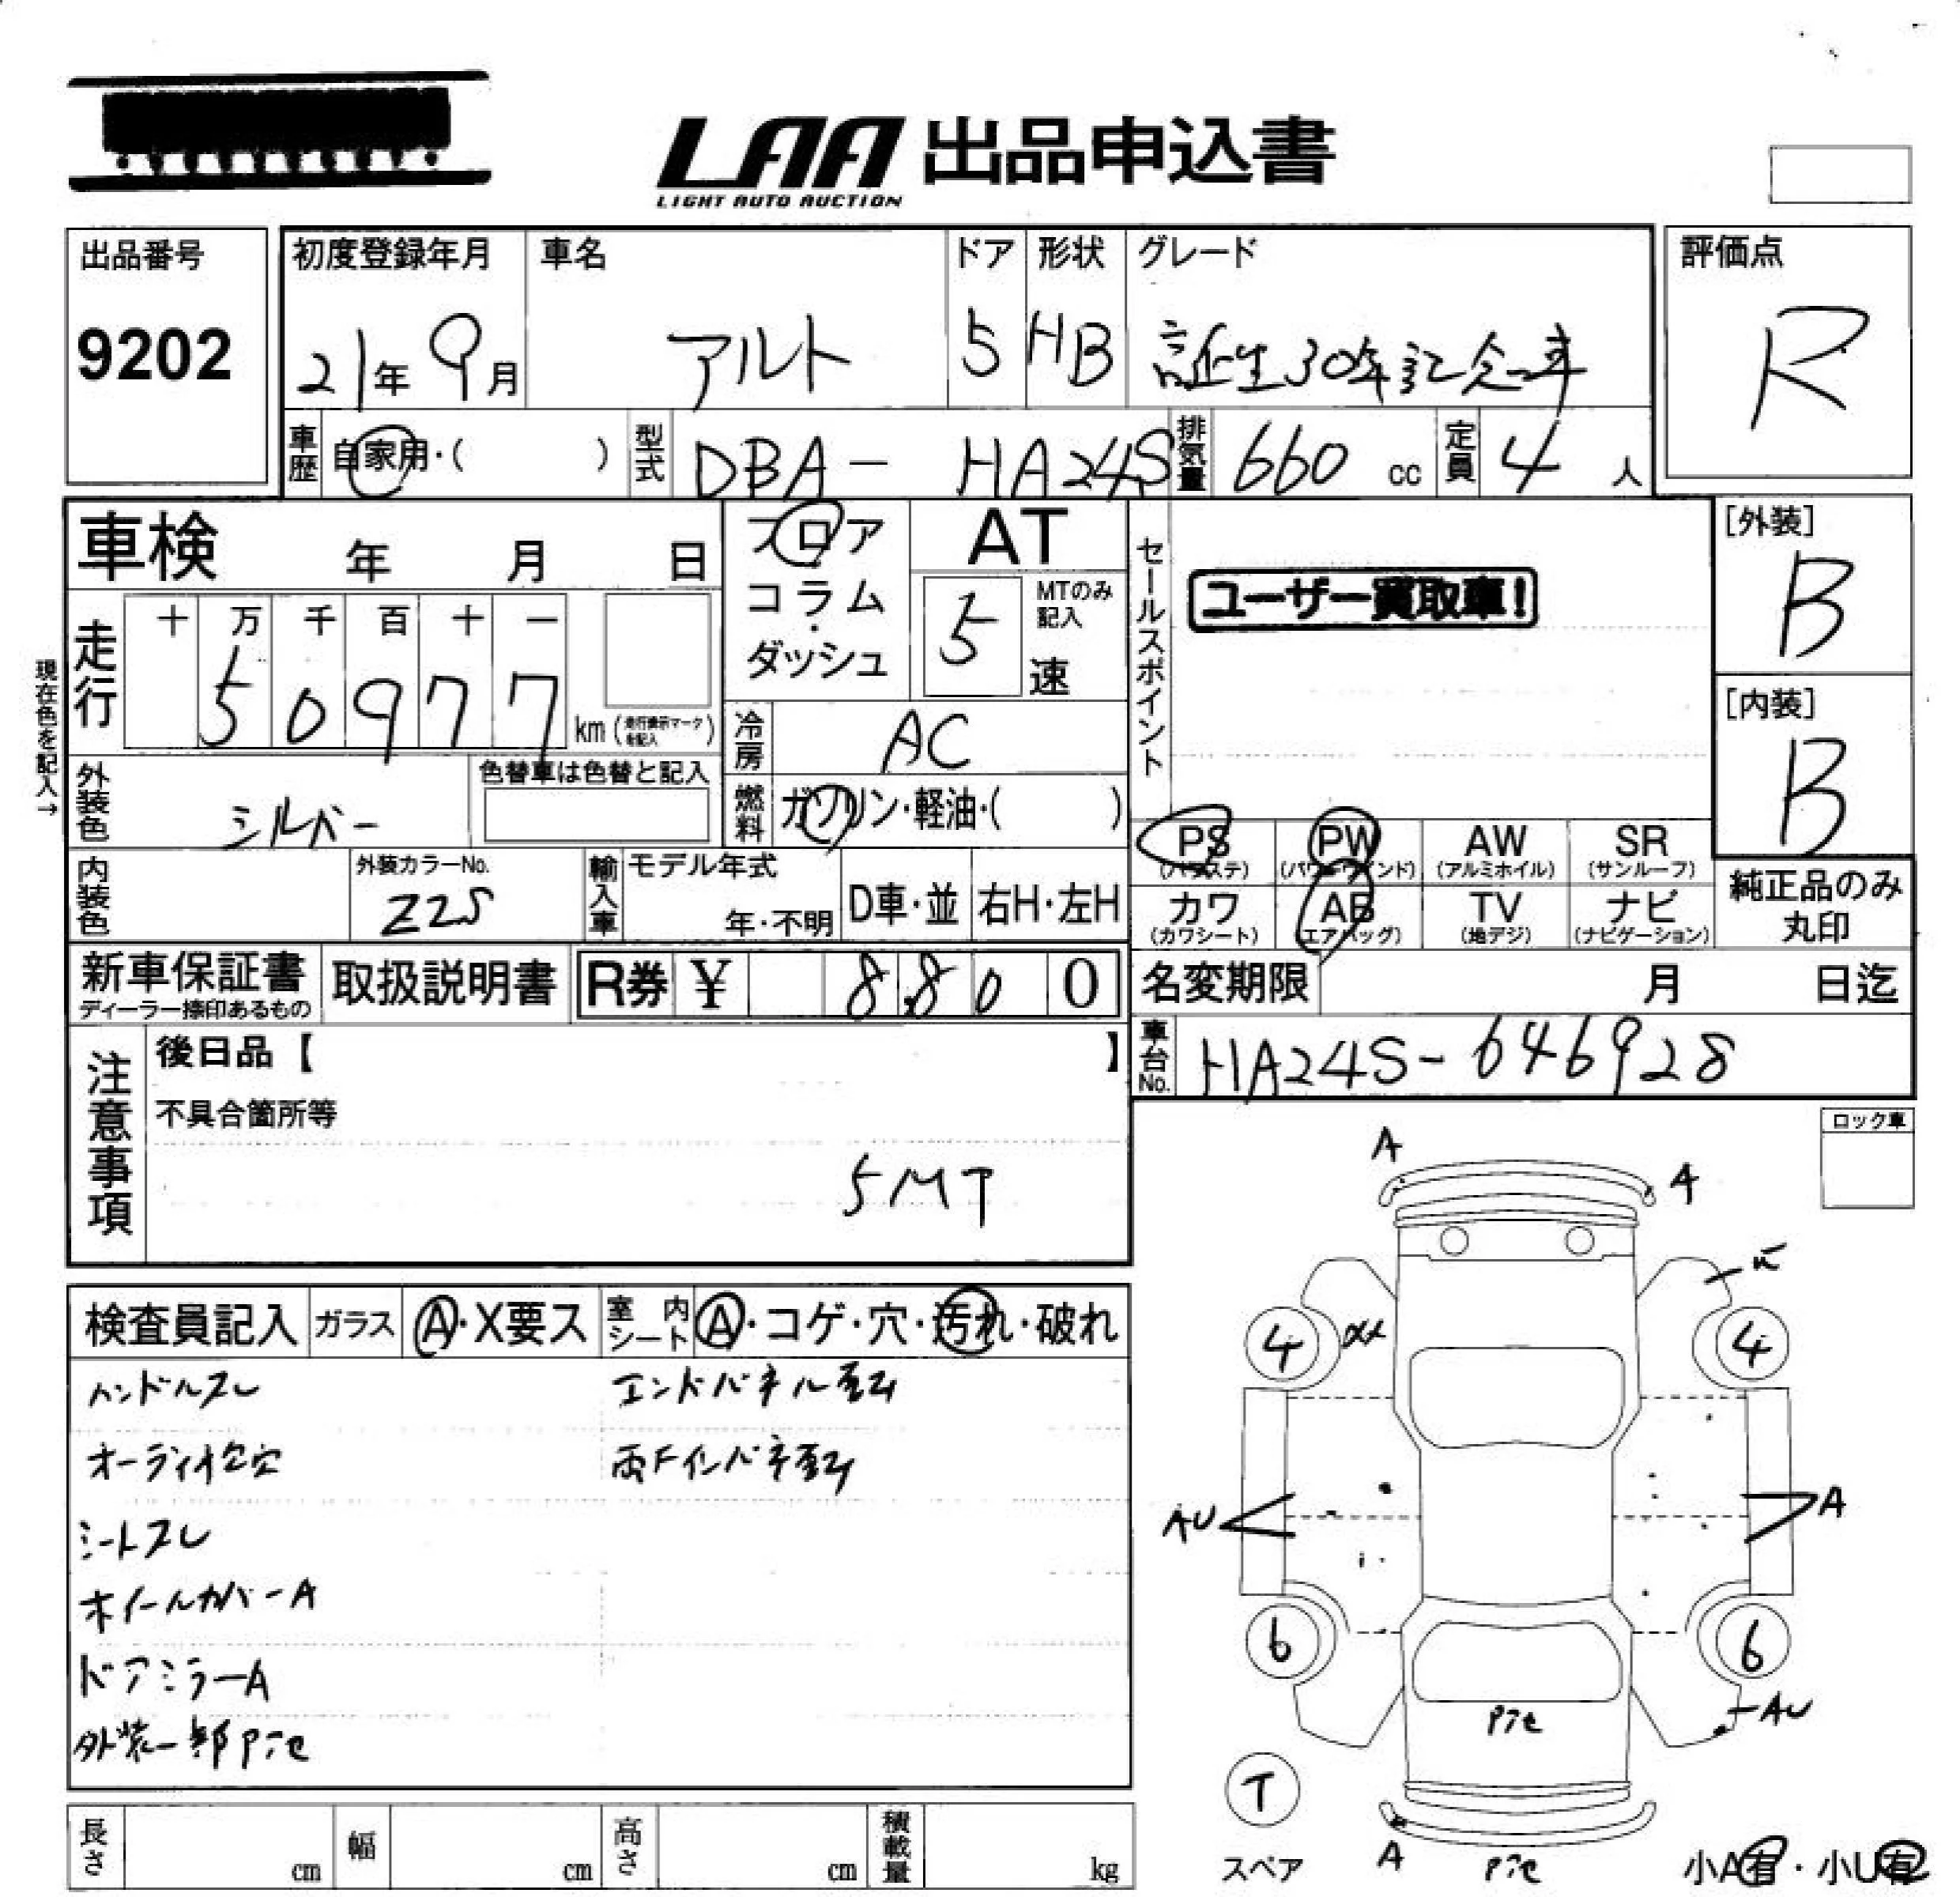 LAA 出品申込書
LIGHT AUTO AUCTION
出品番号
9202
初度登録年月 車名 ドア 形状 グレード
21年 9月 アルト 5 HB 誕生30年記念車
評価点
R
車歴 自家用・( ) 型式 DBA- HA24S 排気量 660 cc 定員 4 人
車検 年 月 日
フロア・コラム・ダッシュ
AT
5 速 MTのみ記入
セールスポイント
ユーザー買取車!
[外装]
B
[内装]
B
現在色を記入→
走行 十 万 千 百 十 一
50977 km (走行表示マークを記入)
冷房 AC
外装色 シルバー
色替車は色替と記入
燃料 ガソリン・軽油・( )
PS (パワステ) PW (パワーウインド) AW (アルミホイル) SR (サンルーフ)
カワ (カワシート) AB (エアバッグ) TV (地デジ) ナビ (ナビゲーション)
純正品のみ丸印
内装色 外装カラーNo. Z2S 輸入車 モデル年式 年・不明 D車・並 右H・左H
新車保証書 ディーラー捺印あるもの 取扱説明書 R券 ¥ 8,800
名変期限 月 日迄
車台No. HA24S-646928
注意事項
後日品【 】
不具合箇所等
5MT
ロック車
検査員記入 ガラス A・X要ス 室内シート A・コゲ・穴・汚れ・破れ
ハンドルスレ エンドパネル歪み
オーディオ欠穴
シートスレ
ホイールカバーA
ドアミラーA
外装一部Pit
A
A
4 4
AU A
6 6
Pit AU
T
スペア A Pit 小A有・小U有
長さ cm 幅 cm 高さ cm 積載量 kg